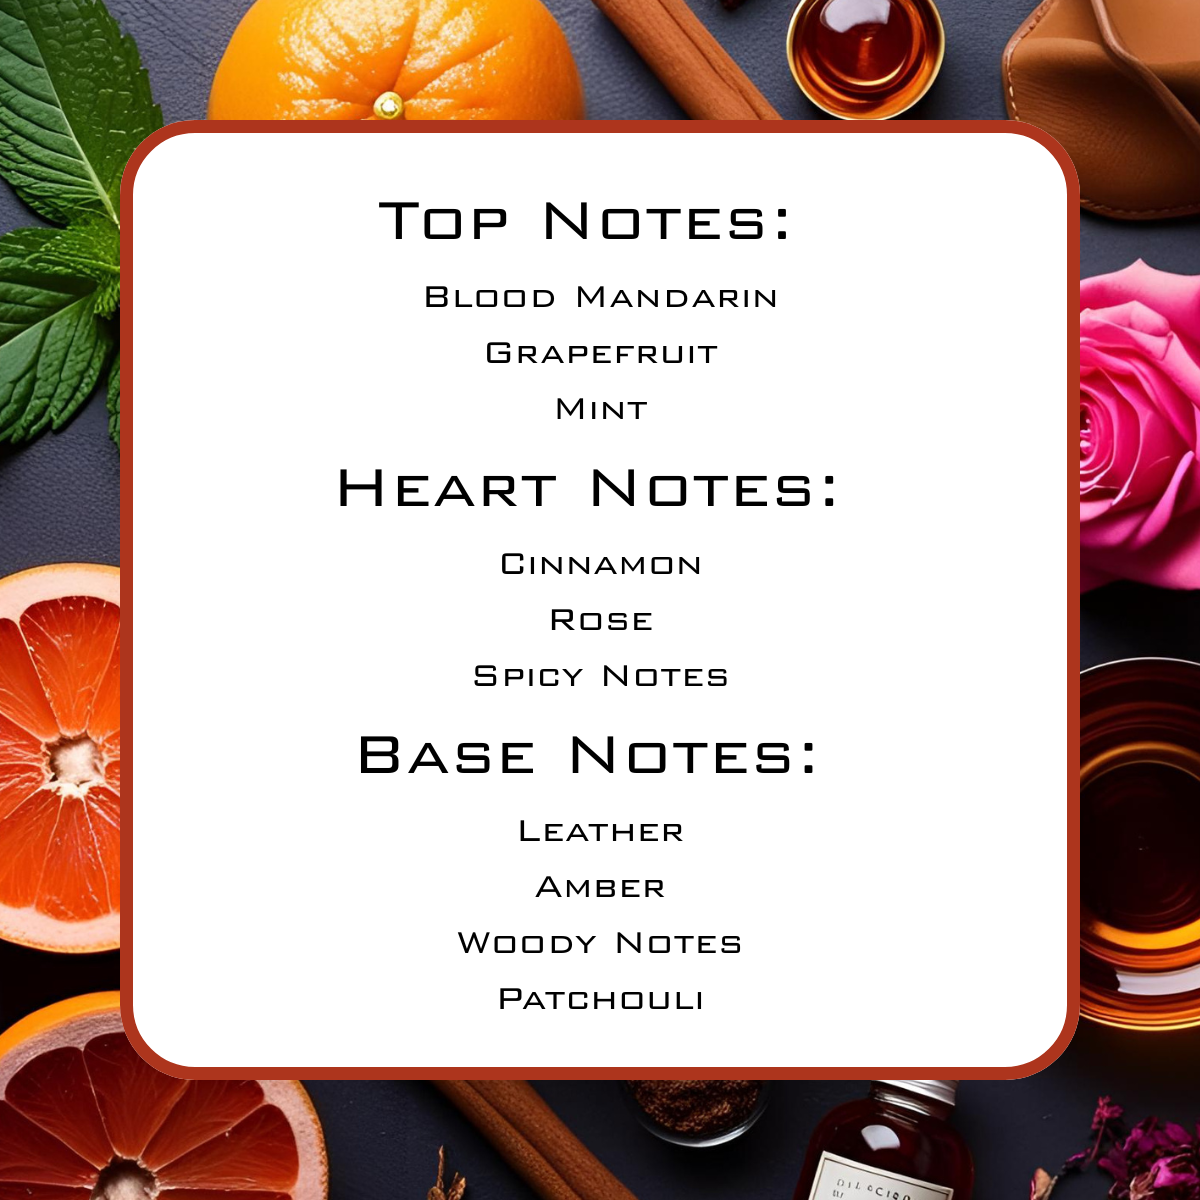 Top Notes:
Blood Mandarin
Grapefruit
Mint
Heart Notes:
Cinnamon
Rose
Spicy Notes
Base Notes:
Leather
Amber
Woody Notes
Patchouli